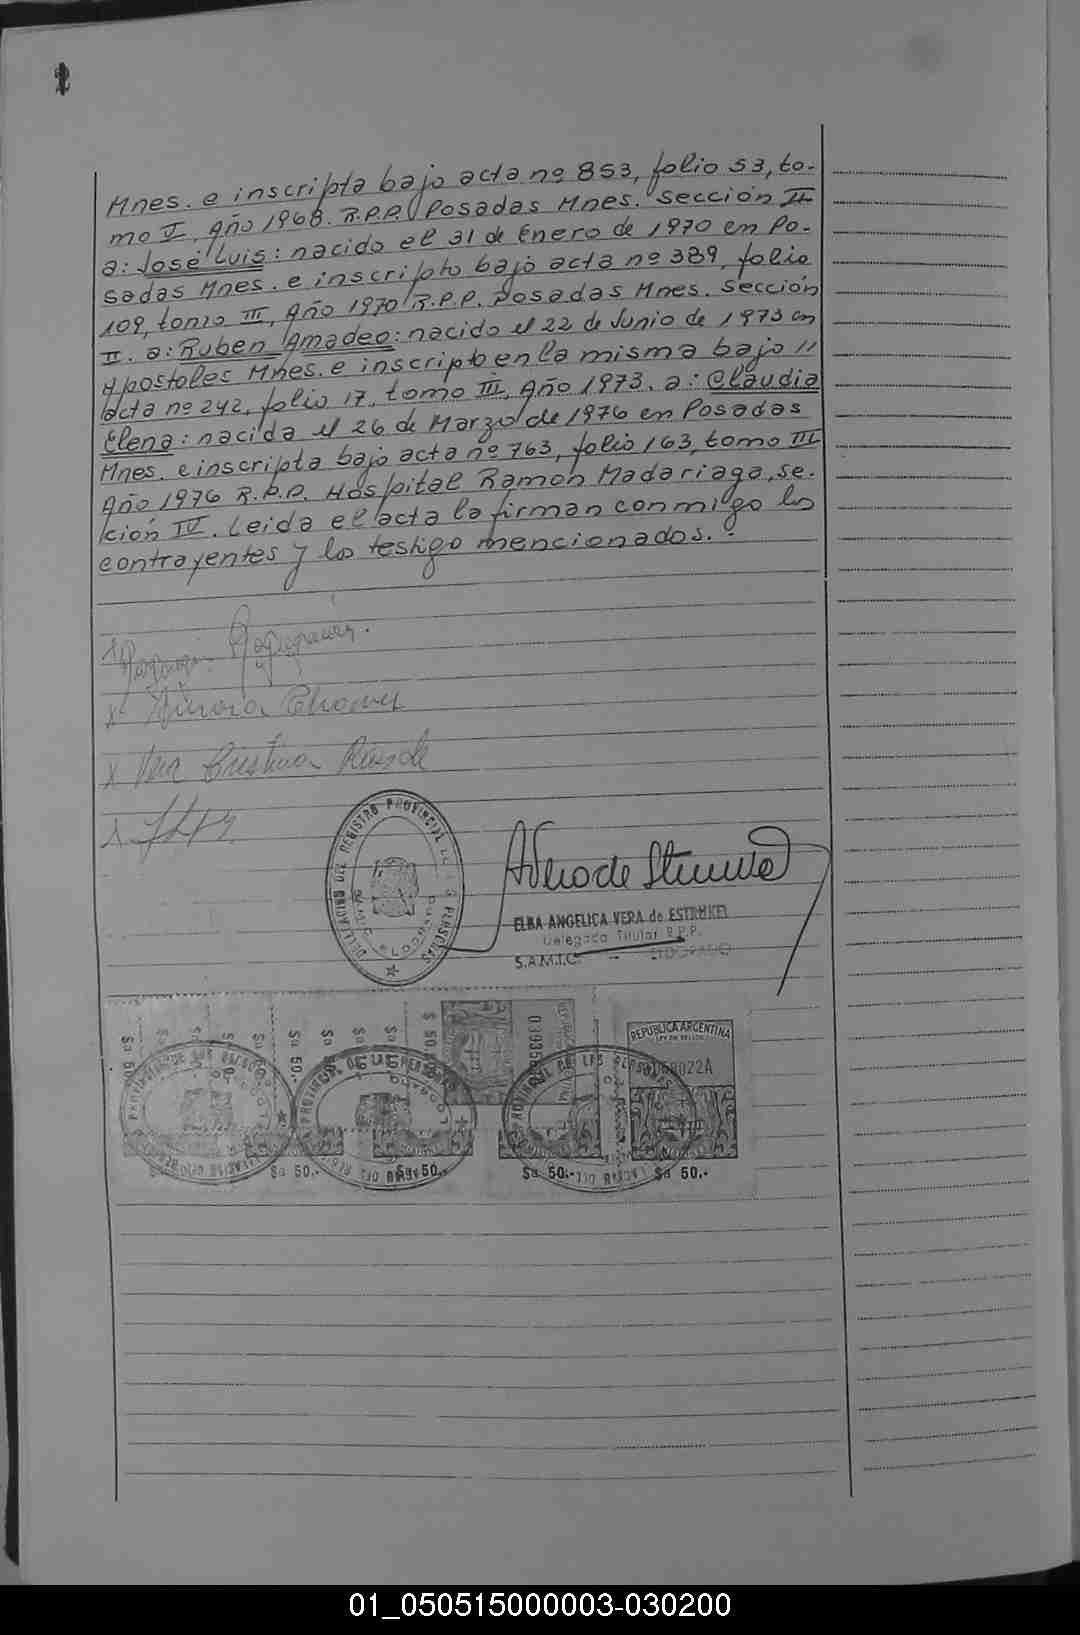 Mnes. e inscripta bajo acta nº 853, folio 53, to-
mo V, Año 1968. R.P.P. Posadas Mnes. Sección II
a: José Luis: nacido el 31 de Enero de 1970 en Po-
sadas Mnes. e inscripto bajo acta nº 389, folio
109, tomo III, Año 1970 R.P.P. Posadas Mnes. Sección
II. a: Ruben Amadeo: nacido el 22 de Junio de 1973 en
Apostoles Mnes. e inscripto en la misma bajo //
acta nº 242, folio 17, tomo III, Año 1973. a: Claudia
Elena: nacida el 26 de Marzo de 1976 en Posadas
Mnes. e inscripta bajo acta nº 763, folio 163, tomo III
Año 1976 R.P.P. Hospital Ramon Madariaga, se-
ción IV. Leida el acta la firman conmigo los
contrayentes y los testigo mencionados.-
x
x
x Cristina
x
DELEGACION DEL REGISTRO PROVINCIAL DE LAS PERSONAS
ELBA ANGELICA VERA de ESTRUKEL
Delegada Titular R.P.P.
S.A.M.I.C. - ELDORADO
$a 50.- $a 50.-
REPUBLICA ARGENTINA
$a 50.- $a 50.- $a 50.- $a 50.-
01_050515000003-030200